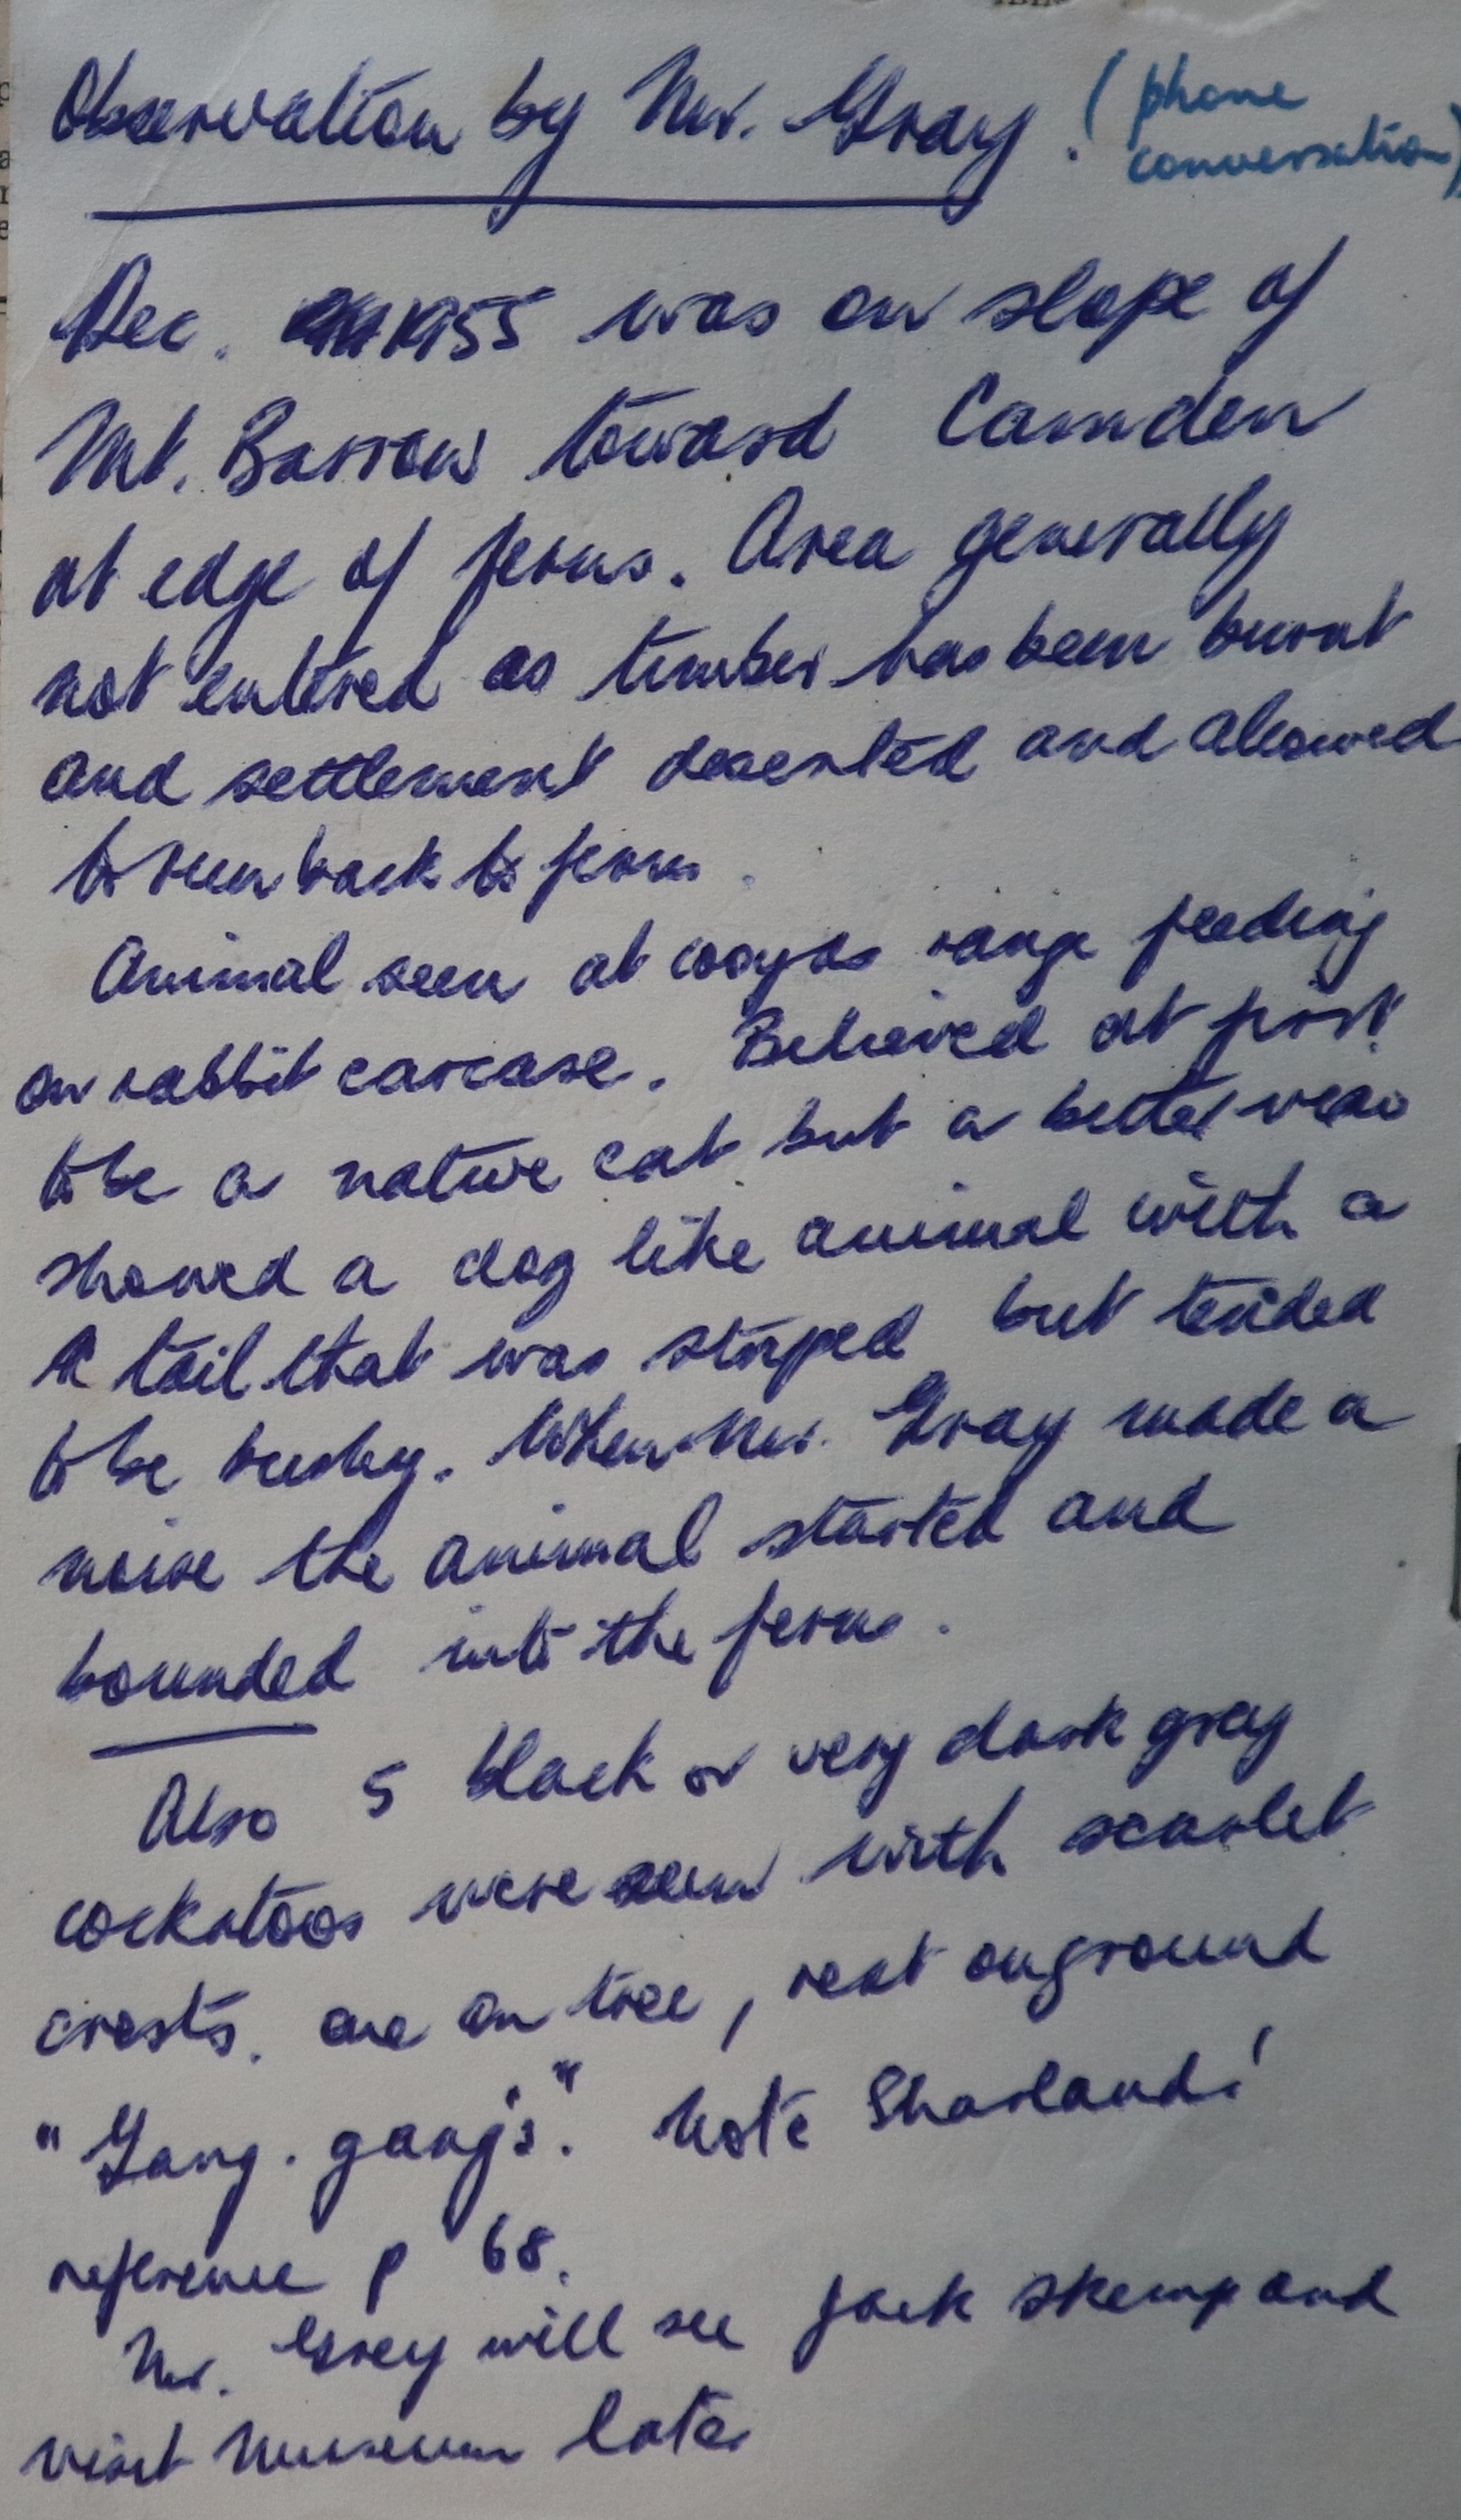 Observation by Mr. Gray. (phone
conversation)
Dec. 1955 was on slope of
Mt. Barrow toward Camden
at edge of ferns. Area generally
not entered as timber has been burnt
and settlement deserted and allowed
to run back to ferns.
Animal seen at range feeding
on rabbit carcase. Believed at first
to be a native cat but a better view
showed a dog like animal with a
tail that was striped but tended
to be bushy. When Mr. Gray made a
noise the animal started and
bounded into the ferns.
Also 5 black or very dark grey
cockatoos were seen with scarlet
crests. one on tree, rest on ground
"Gang-gang's". Note Sharland's
reference p 68.
Mr. Grey will see Jack Skemp and
visit Museum later